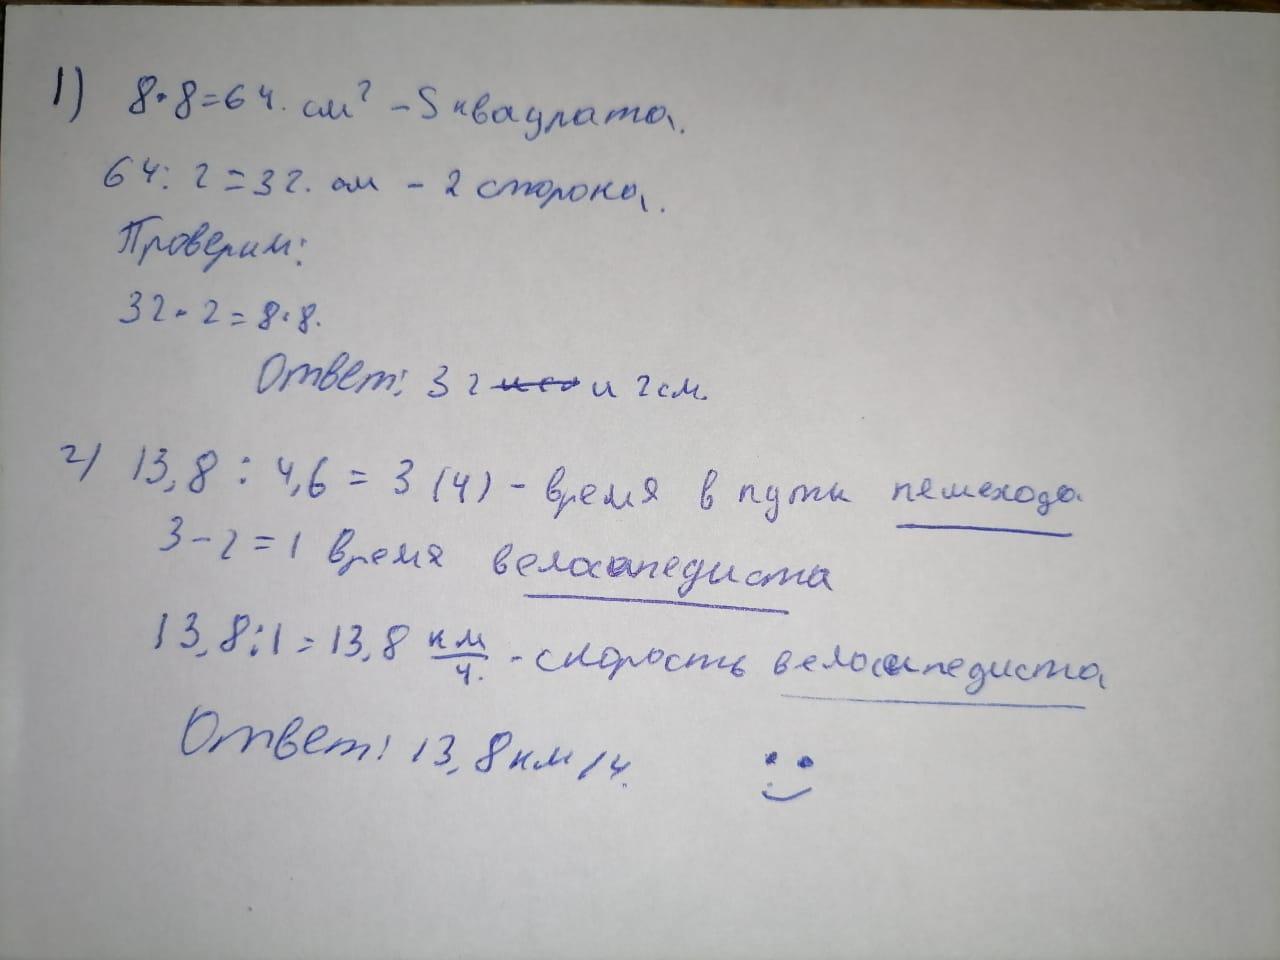 1) 8·8=64. см² – S квадрата.
64:2=32. см – 2 сторона.
Проверим:
32·2=8·8.
Ответ: 32 и 2см.
2) 13,8 : 4,6 = 3 (ч) – время в пути пешехода
3–2=1 время велосипедиста
13,8:1=13,8 км/ч. – скорость велосипедиста
Ответ: 13,8км/ч.